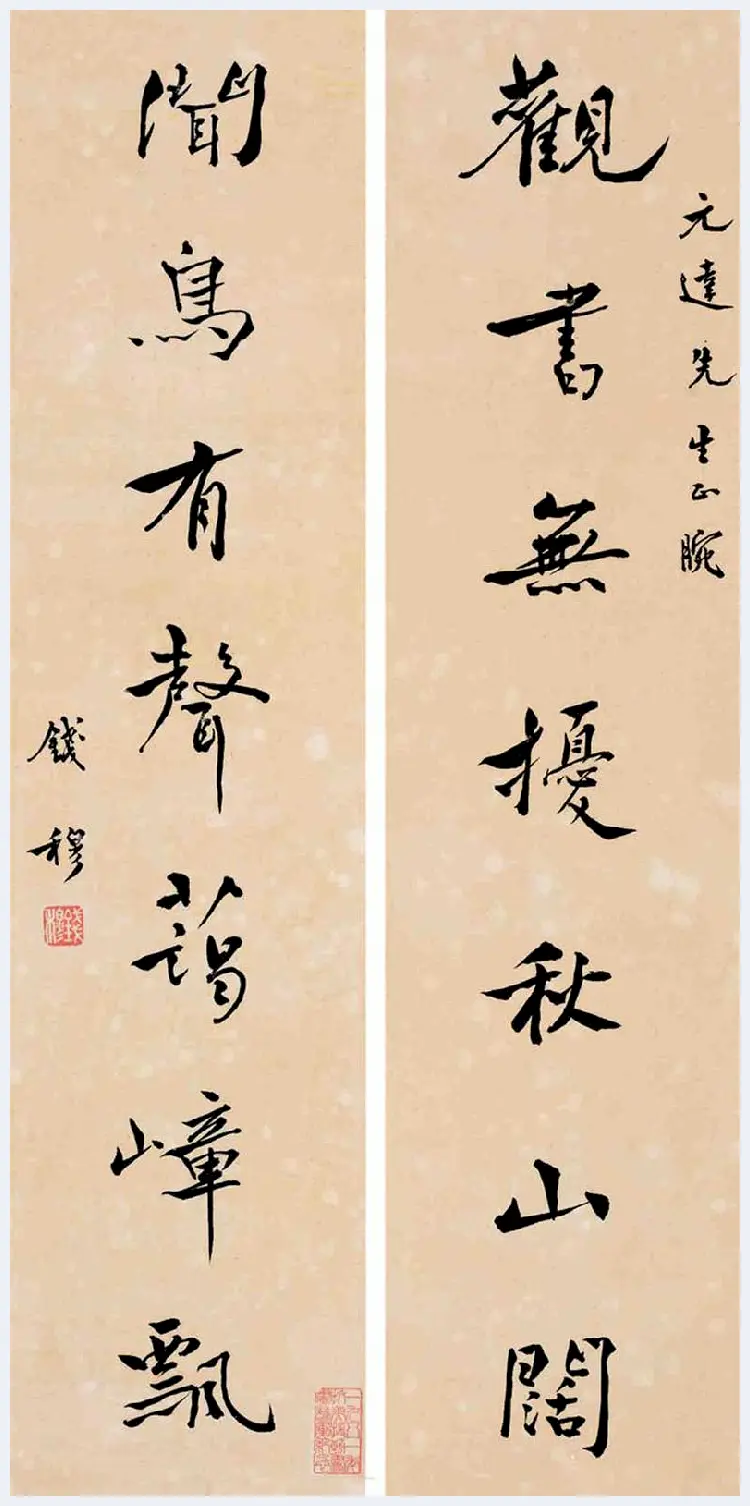 元達先生正腕
觀書無擾秋山闊
聞鳥有聲藹嶂飄
錢穆
錢穆